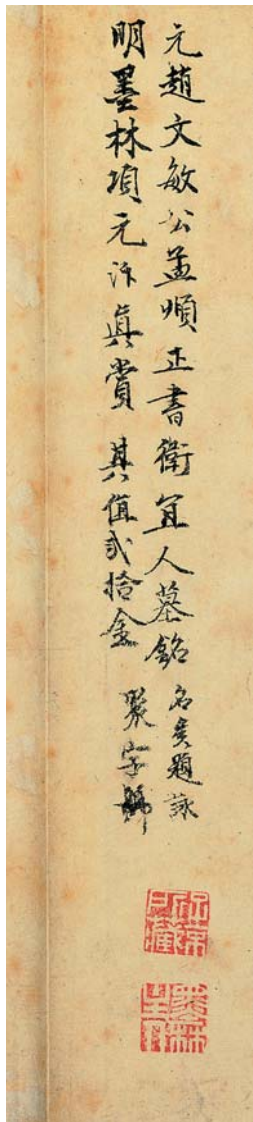 元趙文敏公孟頫正書衛宜人墓銘 名賢題詠
明墨林項元汴眞賞 其值弍拾金 聚字號